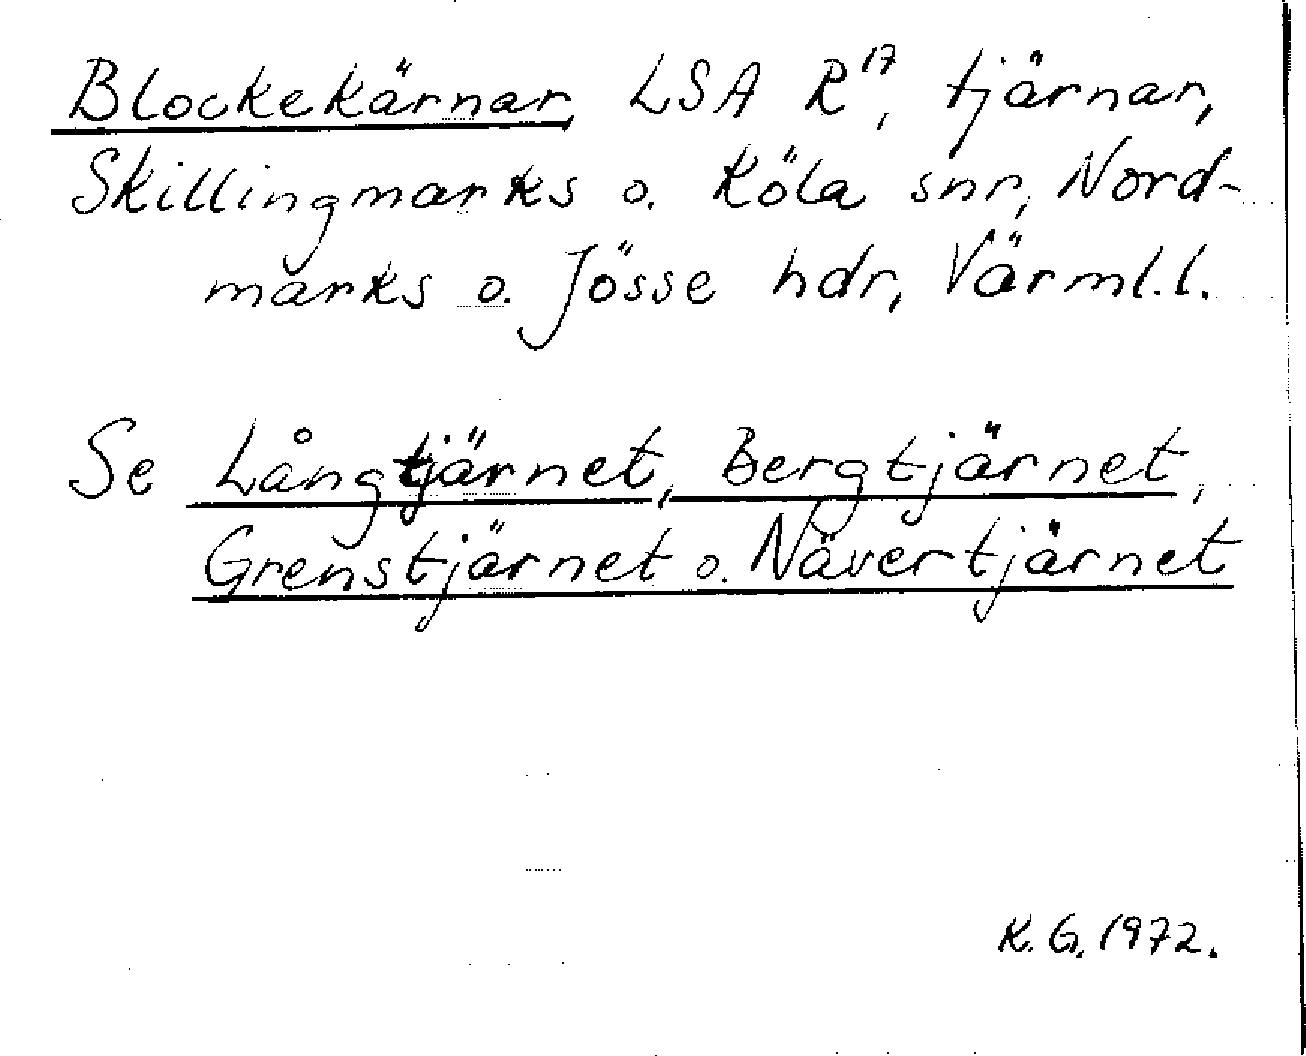 Blockekärnar, LSA R¹⁷, tjärnar,
Skillingmarks o. Köla snr, Nord-
marks o. Jösse hdr, Värml.l.
Se Långtjärnet, Bergtjärnet,
Grenstjärnet o. Nävertjärnet
K.G. 1972.